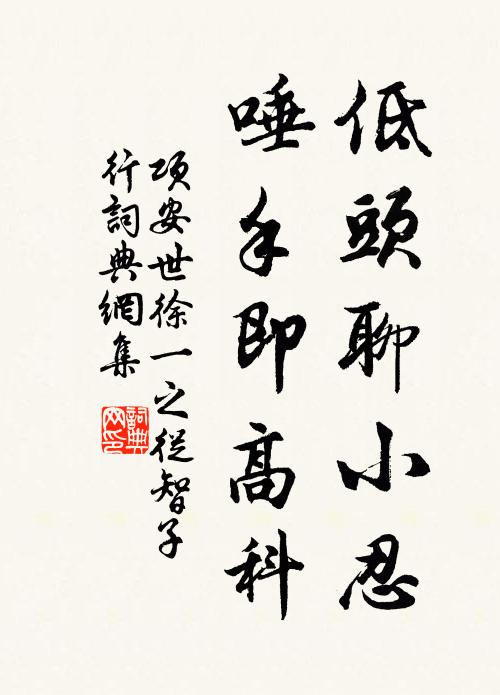 低頭聊小忍
唾手即高科
項安世徐一之從智子
行詞典網集
詞典
网印